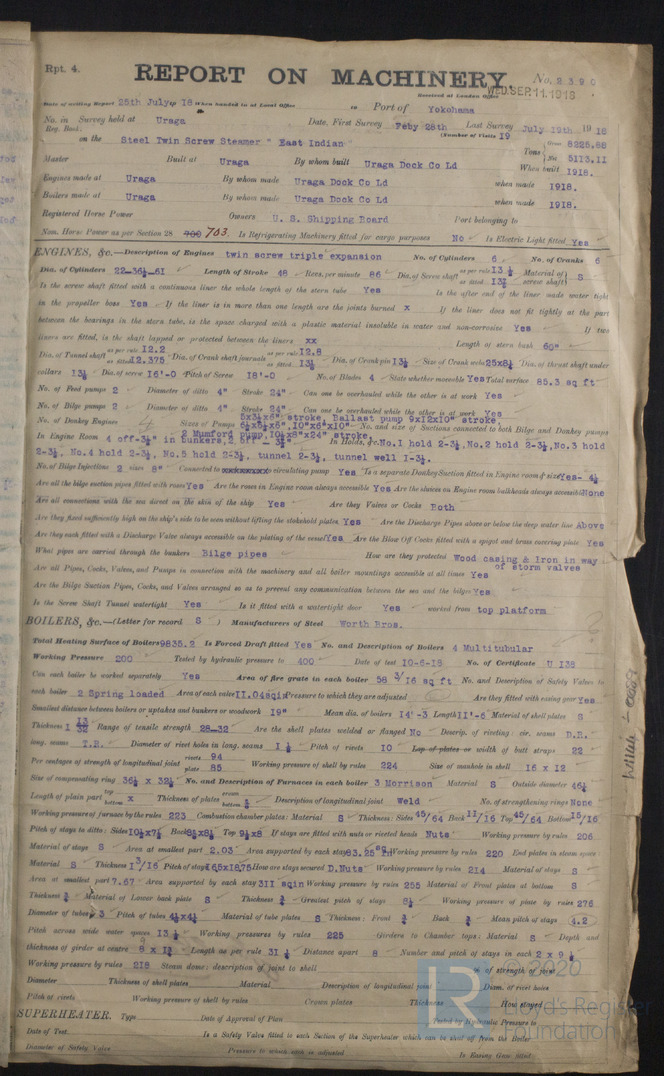 Rpt. 4.
REPORT ON MACHINERY.
No. 2390
Received at London Office WED. SEP. 11. 1918
Date of writing Report 25th July 1918 When handed in at Local Office Port of Yokohama
No. in Survey held at Uraga Date, First Survey Feby 28th Last Survey July 19th 1918
Reg. Book. (Number of Visits 19
on the Steel Twin Screw Steamer " East Indian" Tons Gross 8225.88 Net 5113.11
Master Built at Uraga By whom built Uraga Dock Co Ld When built 1918.
Engines made at Uraga By whom made Uraga Dock Co Ld when made 1918.
Boilers made at Uraga By whom made Uraga Dock Co Ld when made 1918.
Registered Horse Power Owners U. S. Shipping Board Port belonging to
Nom. Horse Power as per Section 28 703. Is Refrigerating Machinery fitted for cargo purposes No Is Electric Light fitted Yes
ENGINES, &c.—Description of Engines twin screw triple expansion No. of Cylinders 6 No. of Cranks 6
Dia. of Cylinders 22-36½-61 Length of Stroke 48 Revs. per minute 86 Dia. of Screw shaft as per rule as fitted Material of screw shaft S
Is the screw shaft fitted with a continuous liner the whole length of the stern tube Yes Is the after end of the liner made water tight
in the propeller boss Yes If the liner is in more than one length are the joints burned x If the liner does not fit tightly at the part
between the bearings in the stern tube, is the space charged with a plastic material insoluble in water and non-corrosive Yes If two
liners are fitted, is the shaft lapped or protected between the liners xx Length of stern bush 60"
Dia. of Tunnel shaft as per rule 12.2 as fitted 12.375 Dia. of Crank shaft journals as per rule 12.8 as fitted Dia. of Crank pin Size of Crank webs Dia. of thrust shaft under
collars Dia. of screw 16'-0 Pitch of Screw 18'-0 No. of Blades 4 State whether moveable Yes Total surface 85.3 sq ft
No. of Feed pumps 2 Diameter of ditto 4" Stroke 24" Can one be overhauled while the other is at work Yes
No. of Bilge pumps 2 Diameter of ditto 4" Stroke 24" Can one be overhauled while the other is at work Yes
No. of Donkey Engines 4 Sizes of Pumps stroke, Ballast pump 9x12x10" stroke, No. and size of Suctions connected to both Bilge and Donkey pumps
2 Mumford pump, stroke,
In Engine Room 4 off-3½" in bunkers, 2 off- In Holds, &c. No.1 hold 2-3½, No.2 hold 2-3½, No.3 hold
2-3½, No.4 hold 2-3½, No.5 hold 2-3½, tunnel 2-3½, tunnel well 1-3½.
No. of Bilge Injections 2 sizes 8" Connected to circulating pump Yes Is a separate Donkey Suction fitted in Engine room & size Yes-
Are all the bilge suction pipes fitted with roses Yes Are the roses in Engine room always accessible Yes Are the sluices on Engine room bulkheads always accessible None
Are all connections with the sea direct on the skin of the ship Yes Are they Valves or Cocks Both
Are they fixed sufficiently high on the ship's side to be seen without lifting the stokehold plates Yes Are the Discharge Pipes above or below the deep water line Above
Are they each fitted with a Discharge Valve always accessible on the plating of the vessel Yes Are the Blow Off Cocks fitted with a spigot and brass covering plate Yes
What pipes are carried through the bunkers Bilge pipes How are they protected Wood casing & Iron in way
of storm valves
Are all Pipes, Cocks, Valves, and Pumps in connection with the machinery and all boiler mountings accessible at all times Yes
Are the Bilge Suction Pipes, Cocks, and Valves arranged so as to prevent any communication between the sea and the bilges Yes
Is the Screw Shaft Tunnel watertight Yes Is it fitted with a watertight door Yes worked from top platform
BOILERS, &c.—(Letter for record S ) Manufacturers of Steel Worth Bros.
Total Heating Surface of Boilers 9835.2 Is Forced Draft fitted Yes No. and Description of Boilers 4 Multitubular
Working Pressure 200 Tested by hydraulic pressure to 400 Date of test 10-6-18 No. of Certificate U 138
Can each boiler be worked separately Yes Area of fire grate in each boiler 58 3/16 sq ft No. and Description of Safety Valves to
each boiler 2 Spring loaded Area of each valve 11.04sqin Pressure to which they are adjusted Are they fitted with easing gear Yes
Smallest distance between boilers or uptakes and bunkers or woodwork 19" Mean dia. of boilers 14'-3 Length 11'-6 Material of shell plates S
Thickness 1 13/32 Range of tensile strength 28-32 Are the shell plates welded or flanged No Descrip. of riveting: cir. seams D.R.
long. seams T.R. Diameter of rivet holes in long. seams Pitch of rivets 10 Lap of plates or width of butt straps 22
Per centages of strength of longitudinal joint rivets 94 plate 85 Working pressure of shell by rules 224 Size of manhole in shell 16 x 12
Size of compensating ring 36½ x 32½ No. and Description of Furnaces in each boiler 3 Morrison Material S Outside diameter 46½
Length of plain part top bottom x Thickness of plates crown bottom Description of longitudinal joint Weld No. of strengthening rings None
Working pressure of furnace by the rules 223 Combustion chamber plates: Material S Thickness: Sides 45/64 Back 11/16 Top 45/64 Bottom 15/16
Pitch of stays to ditto: Sides Back Top If stays are fitted with nuts or riveted heads Nuts Working pressure by rules 206
Material of stays S Area at smallest part 2.03 Area supported by each stay Working pressure by rules 220 End plates in steam space:
Material S Thickness 1 3/16 Pitch of stays How are stays secured D.Nuts Working pressure by rules 214 Material of stays S
Area at smallest part 7.67 Area supported by each stay 311 sqin Working pressure by rules 255 Material of Front plates at bottom S
Thickness Material of Lower back plate S Thickness Greatest pitch of stays Working pressure of plate by rules 276
Diameter of tubes 3 Pitch of tubes Material of tube plates S Thickness: Front Back Mean pitch of stays 4.2
Pitch across wide water spaces Working pressures by rules 225 Girders to Chamber tops: Material S Depth and
thickness of girder at centre Length as per rule Distance apart 8 Number and pitch of stays in each
Working pressure by rules 218 Steam dome: description of joint to shell % of strength of joint
Diameter Thickness of shell plates Material Description of longitudinal joint Diam. of rivet holes
Pitch of rivets Working pressure of shell by rules Crown plates Thickness How stayed
SUPERHEATER. Type Date of Approval of Plan Tested by Hydraulic Pressure to
Date of Test Is a Safety Valve fitted to each Section of the Superheater which can be shut off from the Boiler
Diameter of Safety Valve Pressure to which each is adjusted Is Easing Gear fitted
LR
© 2020
Lloyd's Register
Foundation